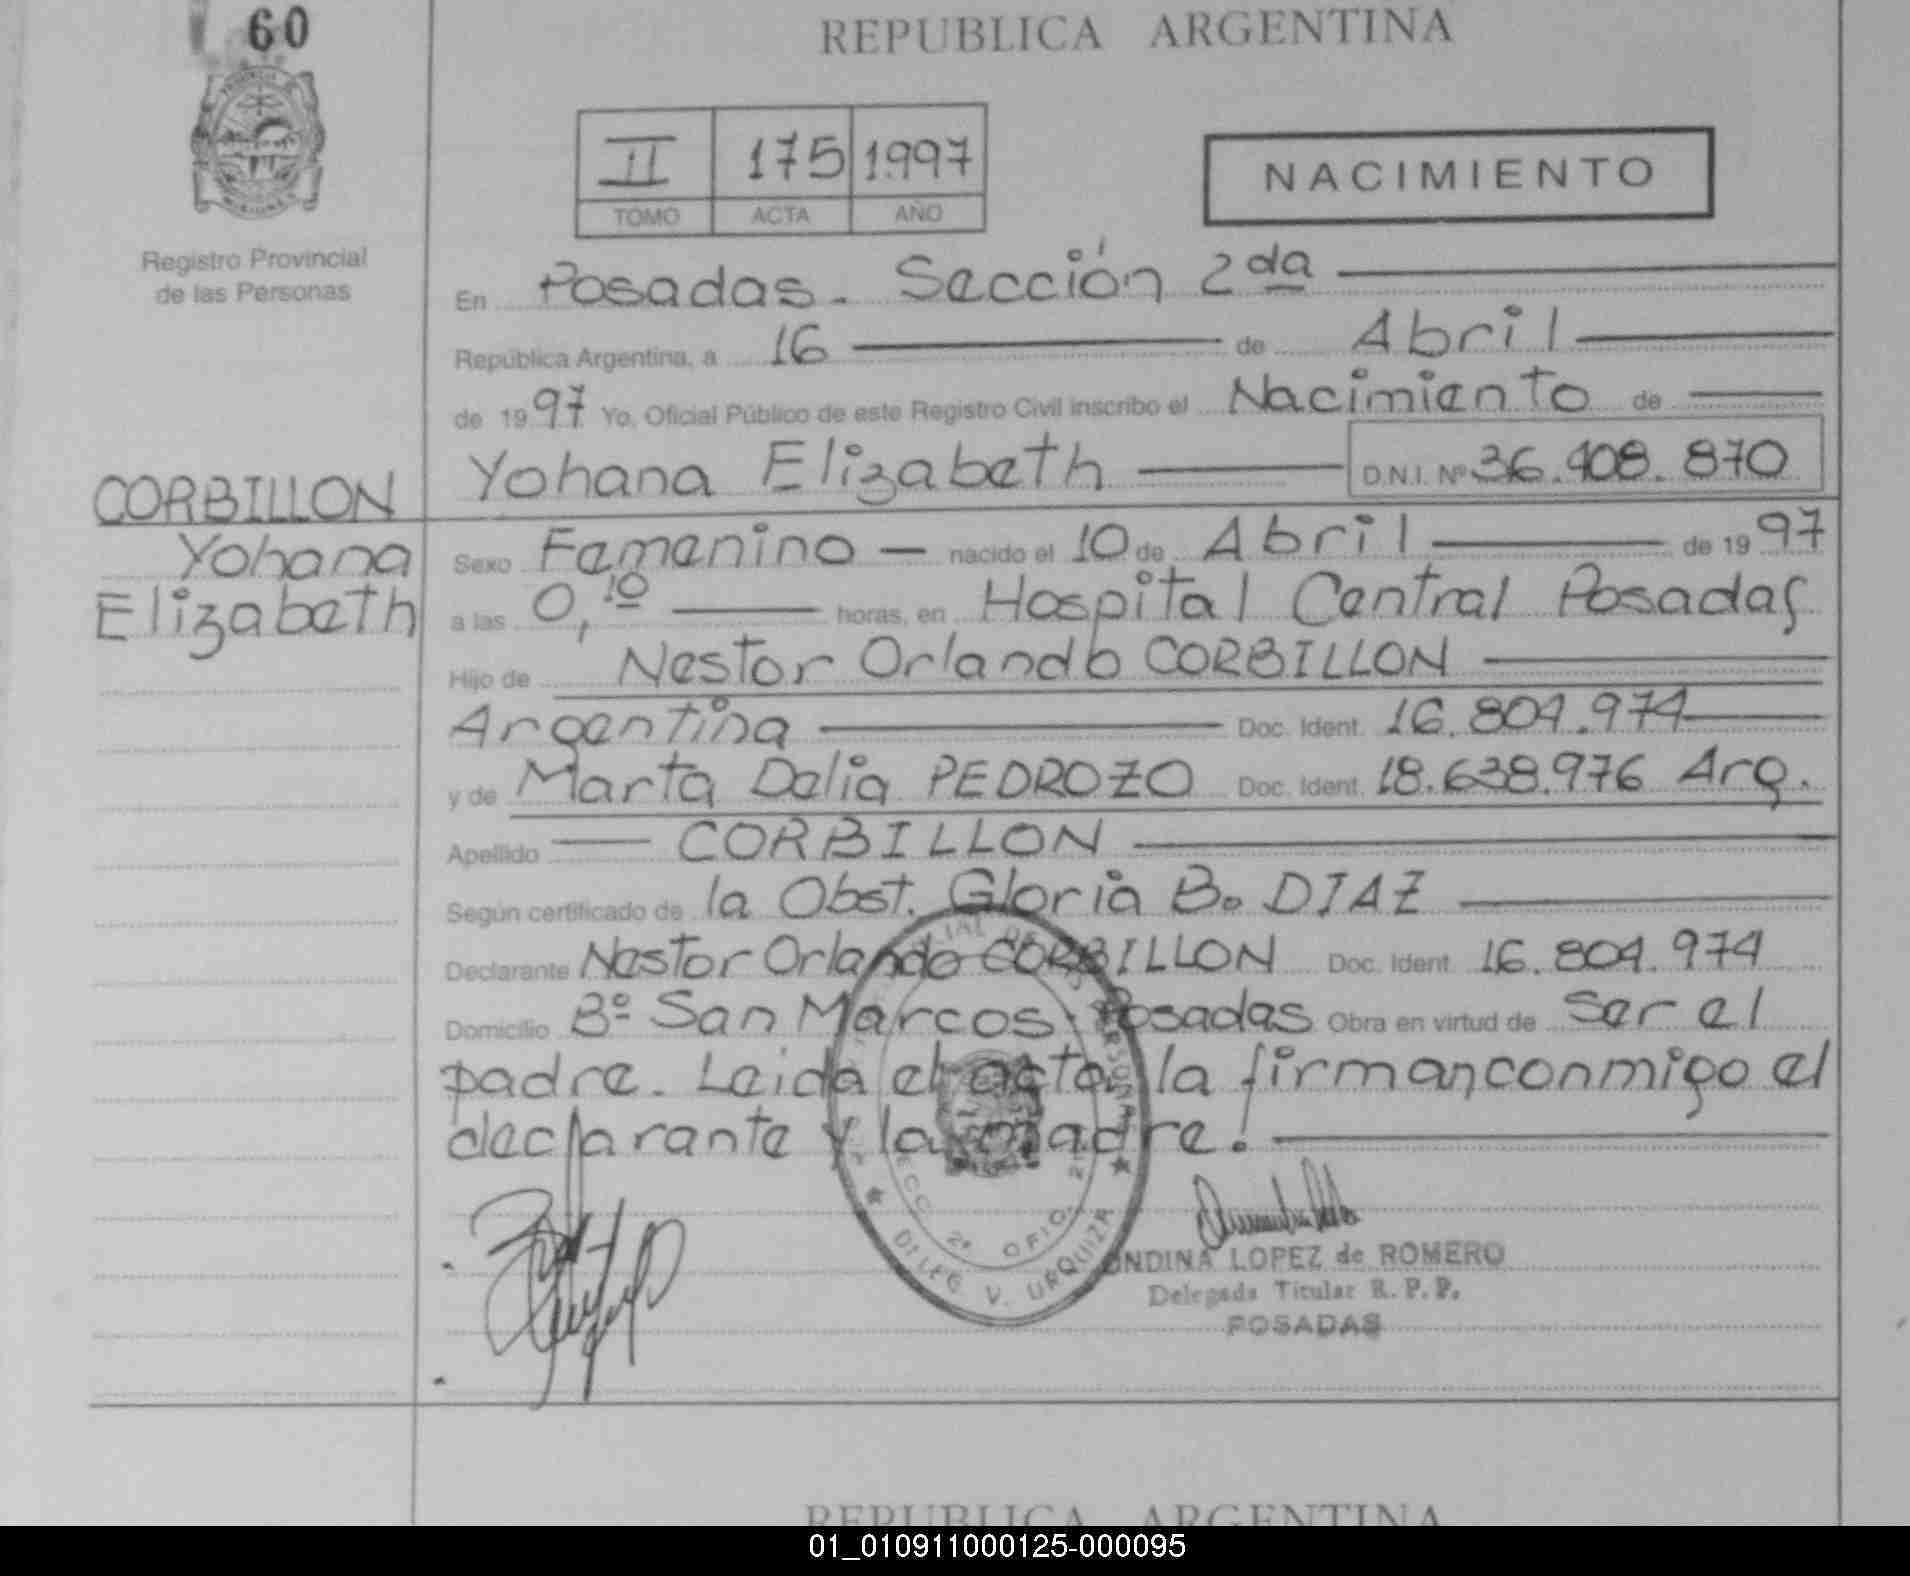 60
REPUBLICA ARGENTINA
II 175 1997
TOMO ACTA AÑO
NACIMIENTO
Registro Provincial
de las Personas
En Posadas. Sección 2da
República Argentina, a 16 de Abril
de 1997 Yo, Oficial Público de este Registro Civil inscribo el Nacimiento de
Yohana Elizabeth D.N.I. Nº 36.408.870
CORBILLON
Yohana
Elizabeth
Sexo Femenino nacido el 10 de Abril de 1997
a las 0,10 horas, en Hospital Central Posadas
Hijo de Nestor Orlando CORBILLON
Argentina Doc. Ident. 16.804.974
y de Marta Delia PEDROZO Doc. Ident. 18.638.976 Arg.
Apellido CORBILLON
Según certificado de la Obst. Gloria B. DIAZ
Declarante Nestor Orlando CORBILLON Doc. Ident. 16.804.974
Domicilio Bº San Marcos. Posadas Obra en virtud de ser el
padre. Leida el acta, la firman, conmigo el
declarante y la madre.
SECC. 2ª OFIC. 2
DELEG V. URQUIZA
ONDINA LOPEZ de ROMERO
Delegada Titular R. P. P.
POSADAS
REPUBLICA ARGENTINA
01_010911000125-000095